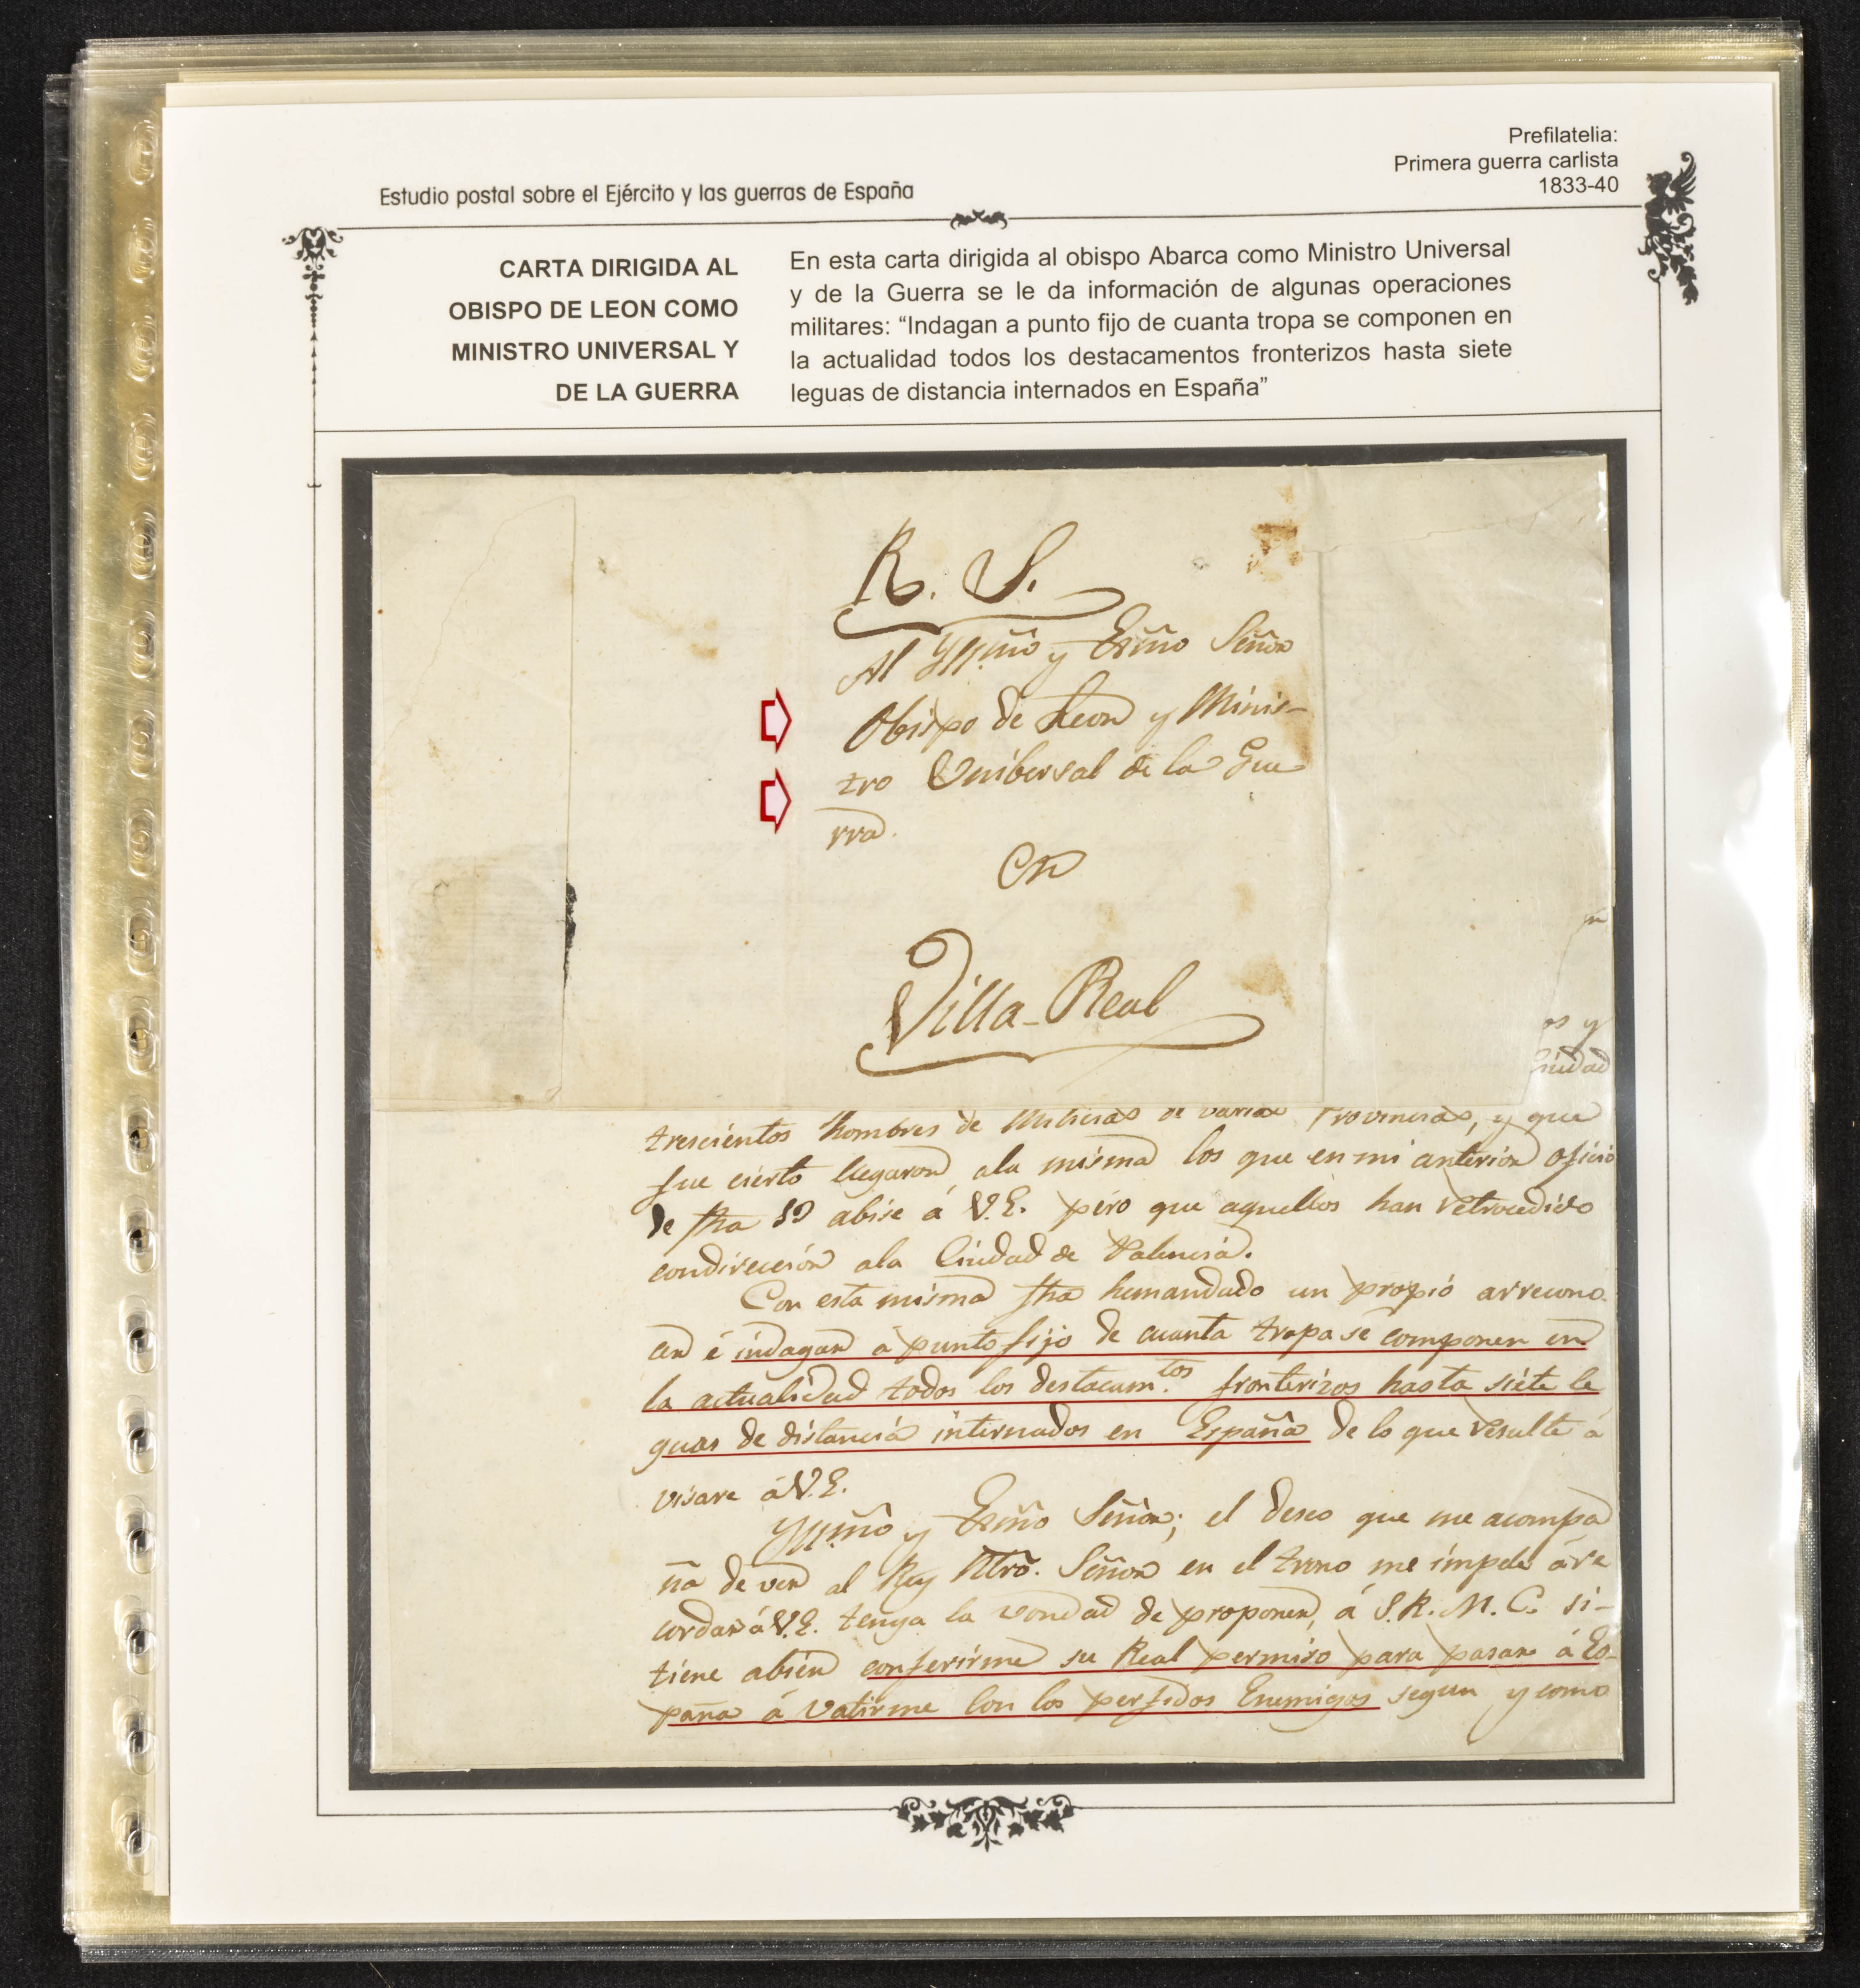 Prefilatelia:
Primera guerra carlista
1833-40
Estudio postal sobre el Ejército y las guerras de España
CARTA DIRIGIDA AL
OBISPO DE LEON COMO
MINISTRO UNIVERSAL Y
DE LA GUERRA
En esta carta dirigida al obispo Abarca como Ministro Universal
y de la Guerra se le da información de algunas operaciones
militares: “Indagan a punto fijo de cuanta tropa se componen en
la actualidad todos los destacamentos fronterizos hasta siete
leguas de distancia internados en España”
R. S.
Al Yllmo y Exmo Señor
Obispo de Leon y Minis-
tro Unibersal de la Gue
rra.
En
Villa-Real
os y
Ciudad
trescientos hombres de Milicias de varias Provincias, y que
fue cierto llegaron, ala misma los que en mi anterior oficio
de fha abise á V.E. pero que aquellos han retrocedido
condirección ala Ciudad de
Con esta misma fha hemandado un propio arrecono-
cer é indagar á punto fijo de cuanta tropa se componen en
la actualidad todos los destacamtos. fronterizos hasta siete le
guas de distancia internados en España de lo que resulte á
visare á V.E.
Yllmo y Exmo Señor; el deseo que me acompa
ña de ver al Rey Ntro. Señor en el trono me impele á re
cordar á V.E. tenga la vondad de proponer, á S.R.M.C. si-
tiene abien conferirme su Real permiso para pasar á Es-
paña á vatirme con los perfidos Enemigos segun y como